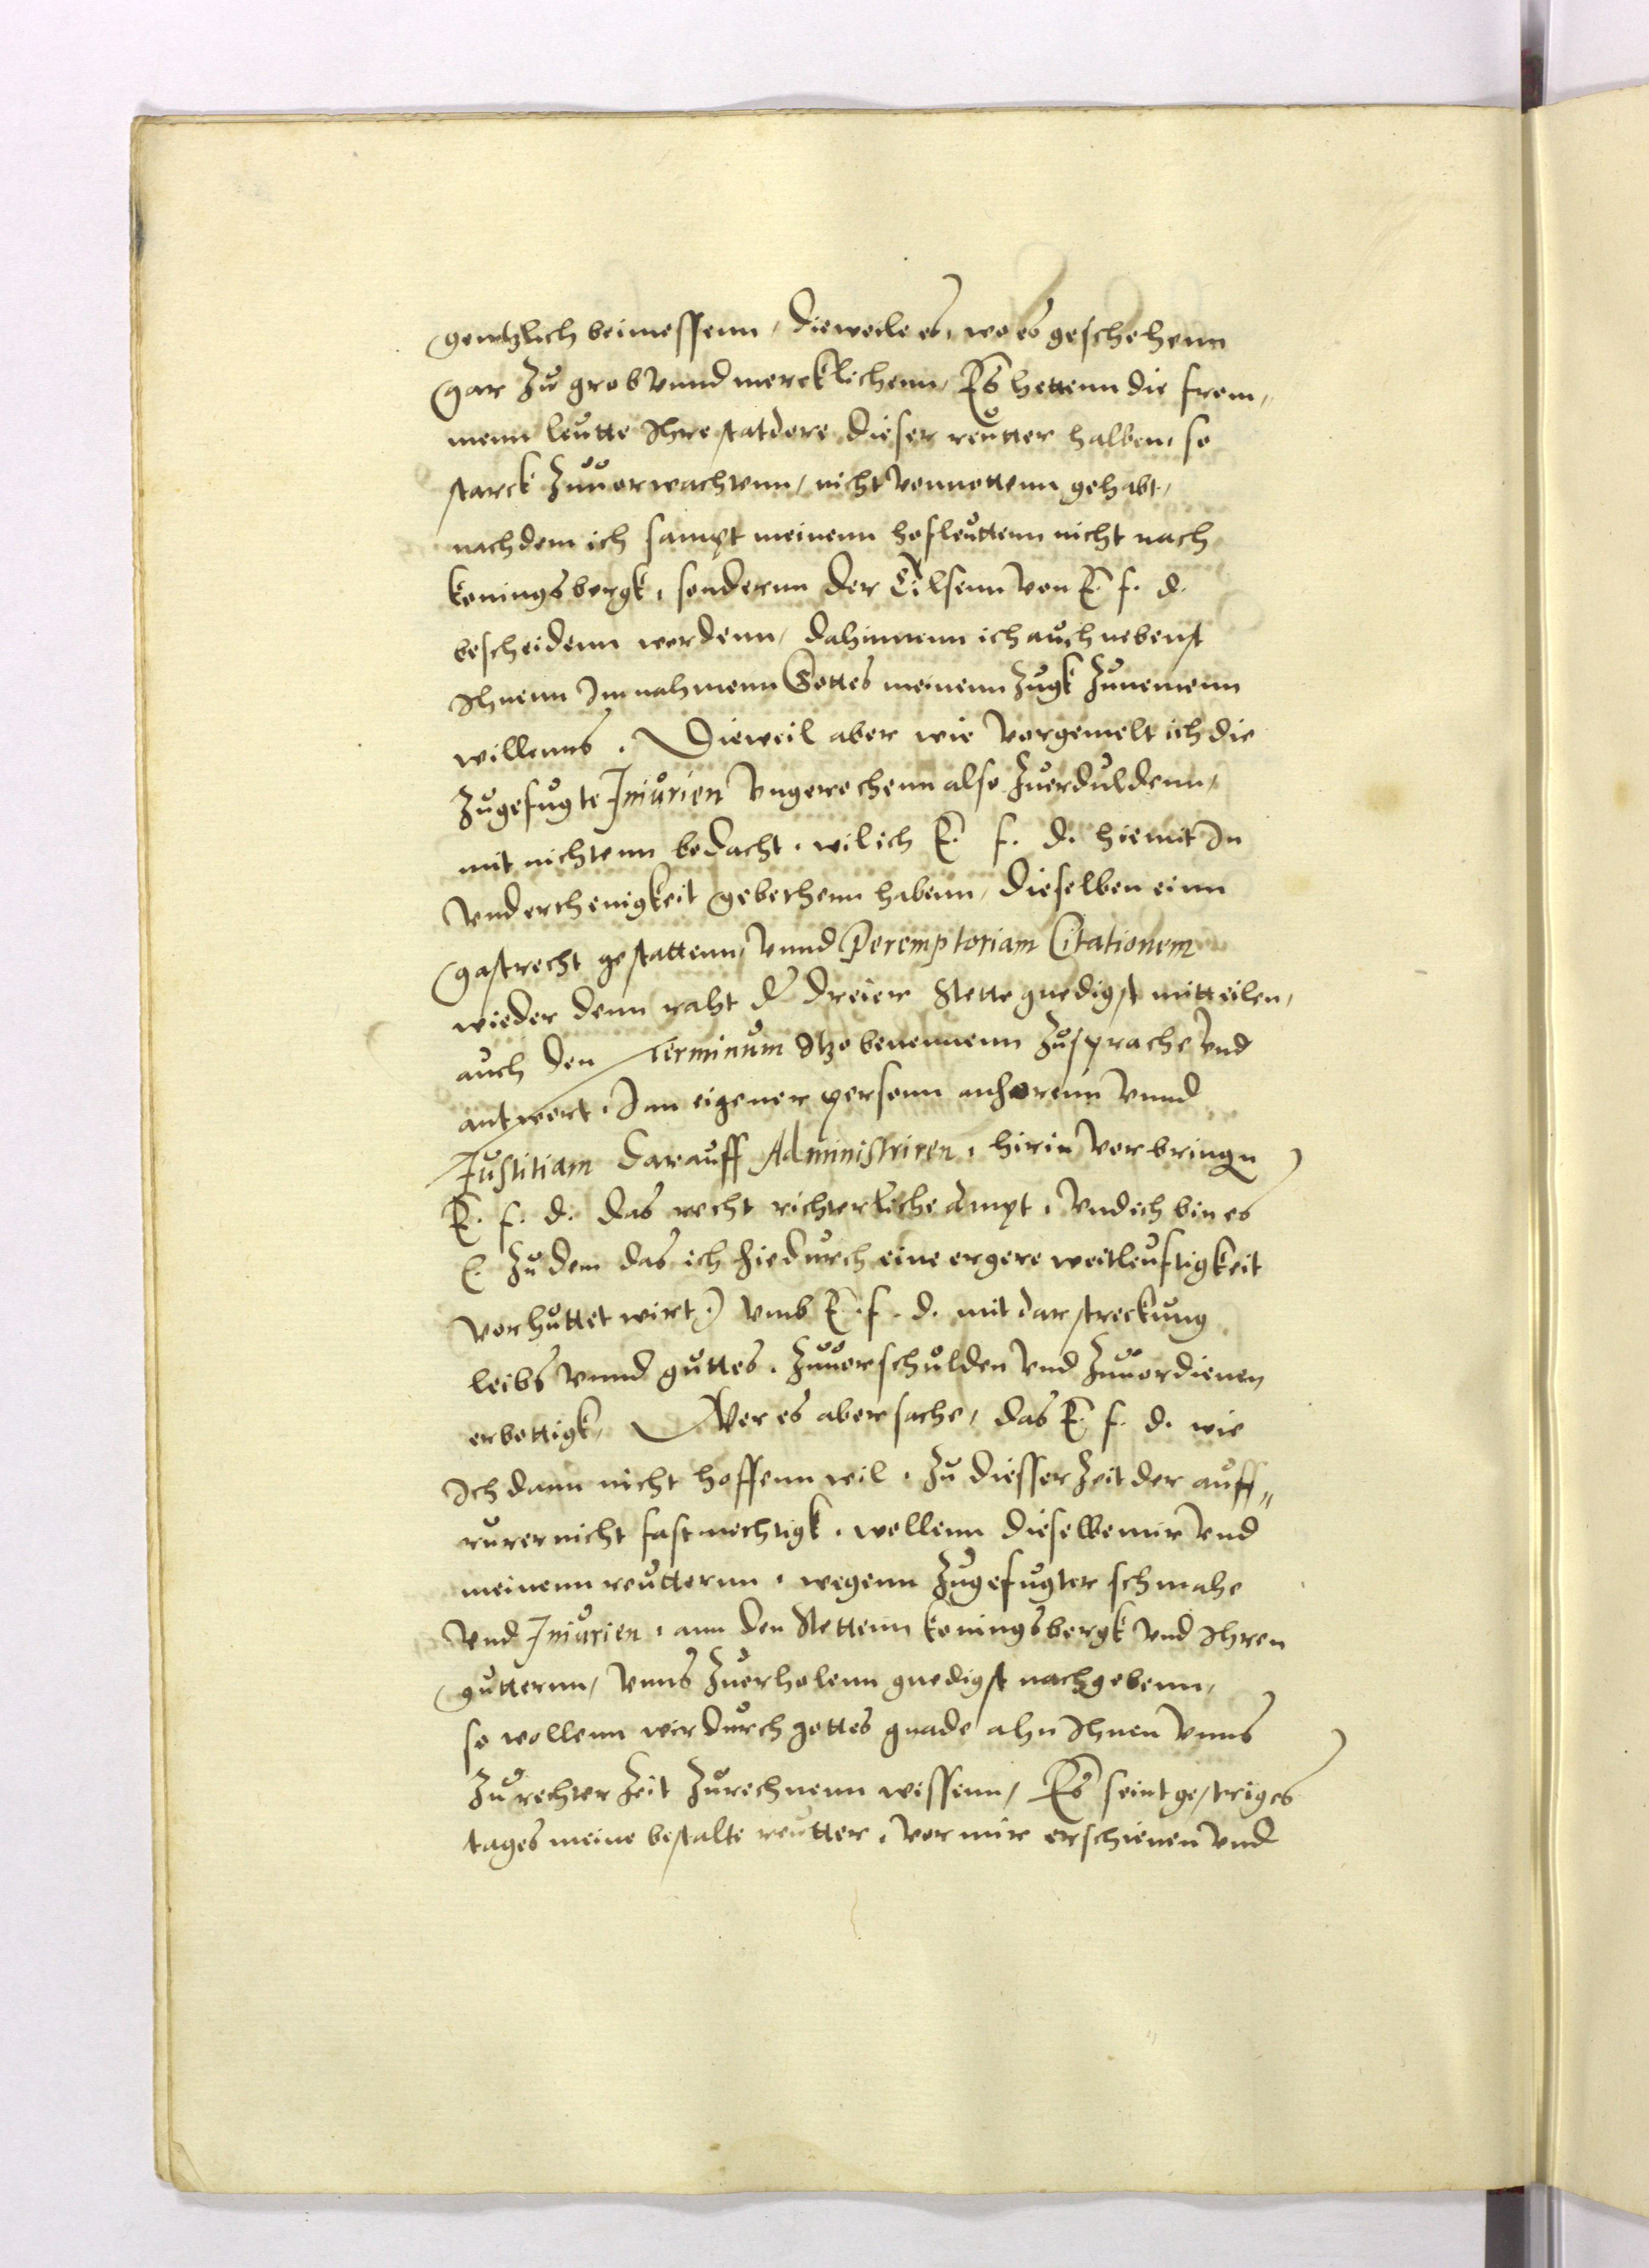 gentzlich beimessenn, dieweile es, wo es geschehenn
gar zu grob vnnd mercklichenn, Es hettenn die from,,
menn leutte Ihre statdore dieser reutter halben, so
starck zuuorwachtenn, nicht vonnottenn gehabt,
nachdem ich sampt meinenn hofleuttenn nicht nach
koningsbergk, sondernn der Tilsenn von E. f. d.
bescheidenn wordenn, dahinnenn ich auch nebenst
Ihnenn Im nahmenn Gottes meinenn zugk zunemenn
willenns. Dieweil aber wie vorgemelt ich die
zugefugte Iniurien vngerechenn also zuerduldenn,
mit nichtenn bedacht. wil ich E. f. d. hiemit In
vnderthenigkeit gebethenn habenn, dieselben einn
gastrecht gestattenn, vnnd Peremptoriam Citationem
wieder denn raht der dreier Stette gnedigst mitteilen,
auch den Terminum Itzo benennenn zusprache vnd
antwort, Inn eigener personn anhorenn vnnd
Justitiam darauff Administriren, hirin vorbringen
E. f. d. das recht richterliche ampt, vnd ich bin es
(. zu dem das ich hiedurch eine ergere weitleuftigkeit
vorhuttet wirt.) vmb E. f. d. mit darstreckung
leibs vnnd guttes. zuuorschulden vnd zuuordienen
erbottigk, Wer es aber sache, das E. f. d. wie
Ich dann nicht hoffenn wil, zu diesser zeit der auff,,
rurer nicht fast mechtigk, wollenn dieselbe mir vnd
meinenn reutternn, wegenn zugefugter schmahe
vnd Iniurien, ann den Stettenn koningsbergk vnd Ihren
gutternn, vnns zuerholenn gnedigst nachgebenn,
so wollenn wir durch gottes gnade ahn Ihnen vnns
zu rechter zeit zurechnenn wissenn, Es seint gestriges
tages meine bestalte reutter, vor mir erschienen vnd